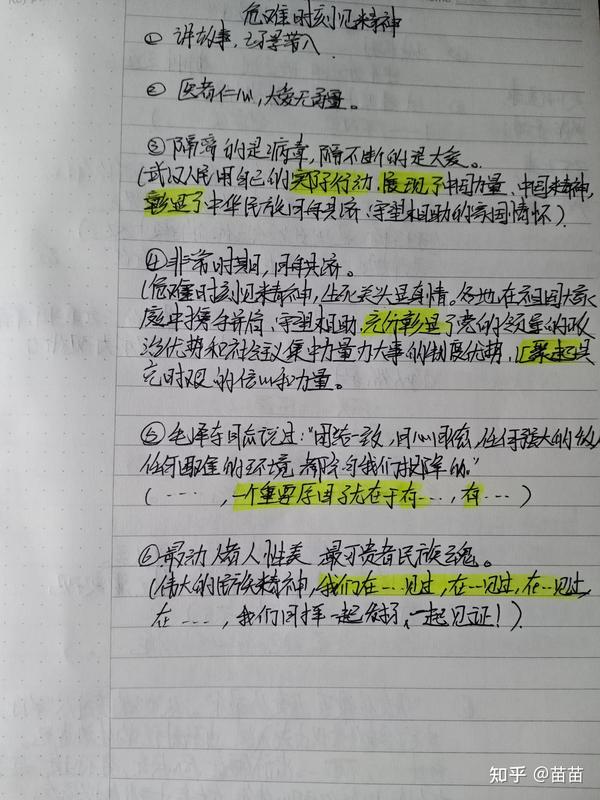 危难时刻见精神
① 讲故事,场景带入
② 医者仁心,大爱无疆。
③ 隔离的是病毒,隔不断的是大爱。
(武汉人民用自己的实际行动、展现了中国力量、中国精神,
彰显了中华民族同舟共济、守望相助的家国情怀)
④ 非常时期,同舟共济。
(危难时刻见精神,生死关头显真情。各地在祖国大家
庭中携手并肩、守望相助,充分彰显了党的领导的政
治优势和社会主义集中力量办大事的制度优势,汇聚起共
克时艰的信心和力量。
⑤ 毛泽东同志说过:"团结一致,同心同德,任何强大的敌人
任何困难的环境 都会向我们投降的."
(……,一个重要原因就在于有…,有…)
⑥ 最动人者人性美 最可贵者民族魂。
(伟大的民族精神,我们在…见过,在…见过,在…见过,
在……,我们同样一起发扬,一起见证!)
知乎 @苗苗